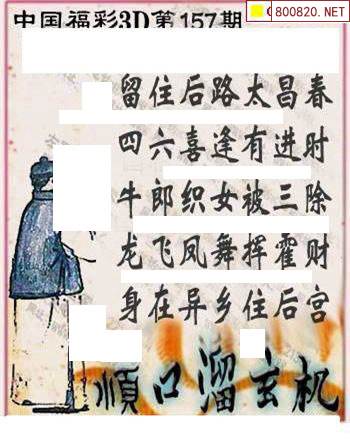 中国福彩3D第157期
800820.NET
留住后路太昌春
四六喜逢有进时
牛郎织女被三除
龙飞凤舞挥霍财
身在异乡住后宫
顺口溜玄机